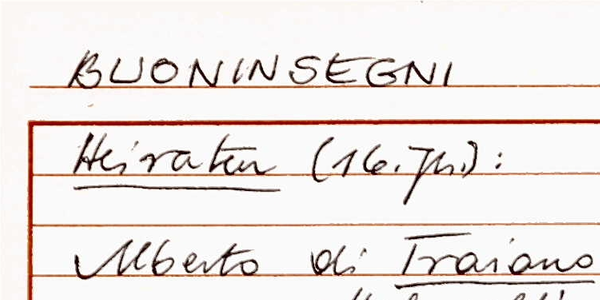 BUONINSEGNI
Heiraten (16. Jh.):
Alberto di Traiano